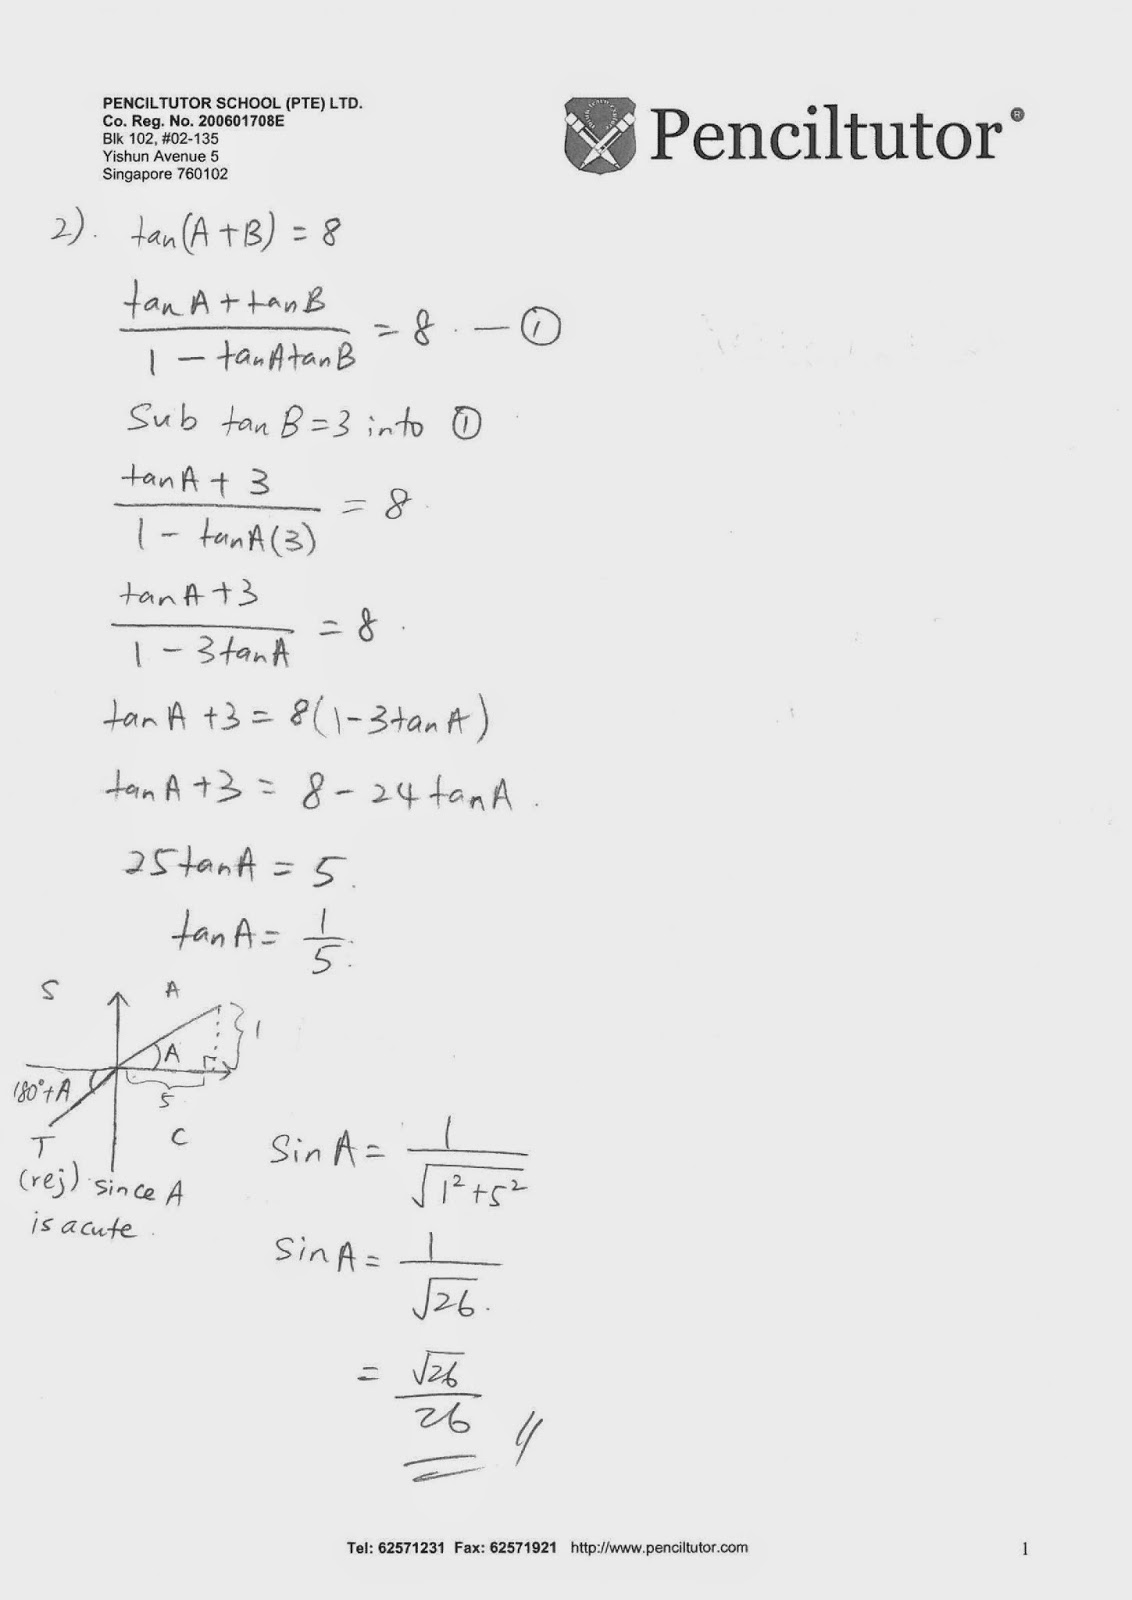 PENCILTUTOR SCHOOL (PTE) LTD.
Co. Reg. No. 200601708E
Blk 102, #02-135
Yishun Avenue 5
Singapore 760102
Penciltutor®
2). tan(A+B) = 8
tanA + tanB
1 - tanAtanB
= 8. - ①
Sub tanB=3 into ①
tanA + 3
1 - tanA(3)
= 8.
tanA+3
1 - 3tanA
= 8.
tanA +3 = 8(1-3tanA)
tanA +3 = 8 - 24tanA.
25tanA = 5.
tanA = 1/5.
S A
1
A
180°+A
5
T C
(rej) since A
is acute.
SinA = 1/√1²+5²
SinA = 1/√26.
= √26/26 //
Tel: 62571231 Fax: 62571921 http://www.penciltutor.com
1